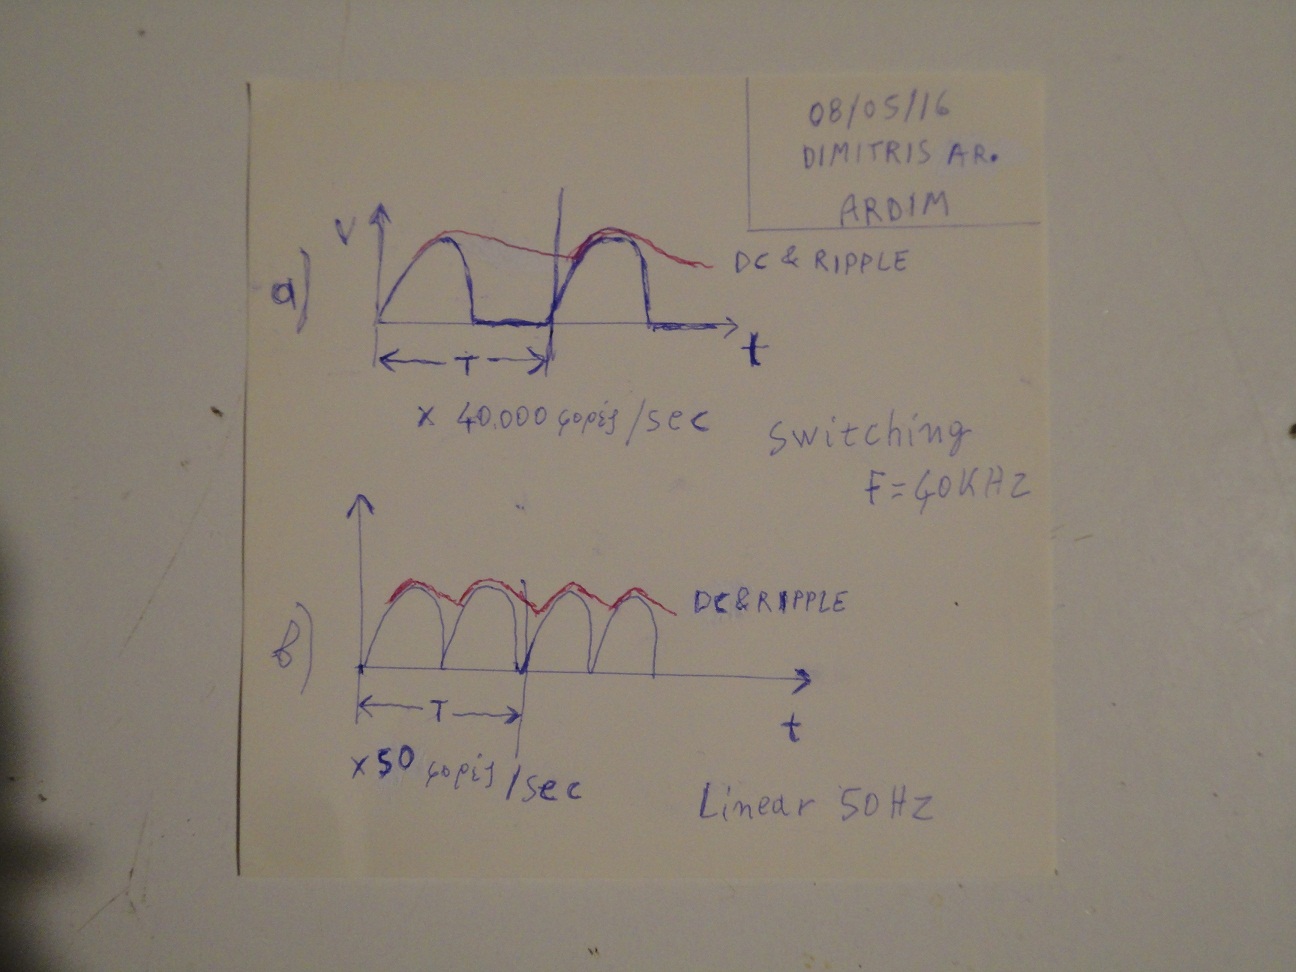 08/05/16
DIMITRIS AR.
ARDIM
a)
V
DC & RIPPLE
t
T
x 40.000 φορές/sec
Switching
F=40KHz
b)
DC&RIPPLE
T
t
x50 φορές/sec
Linear 50Hz